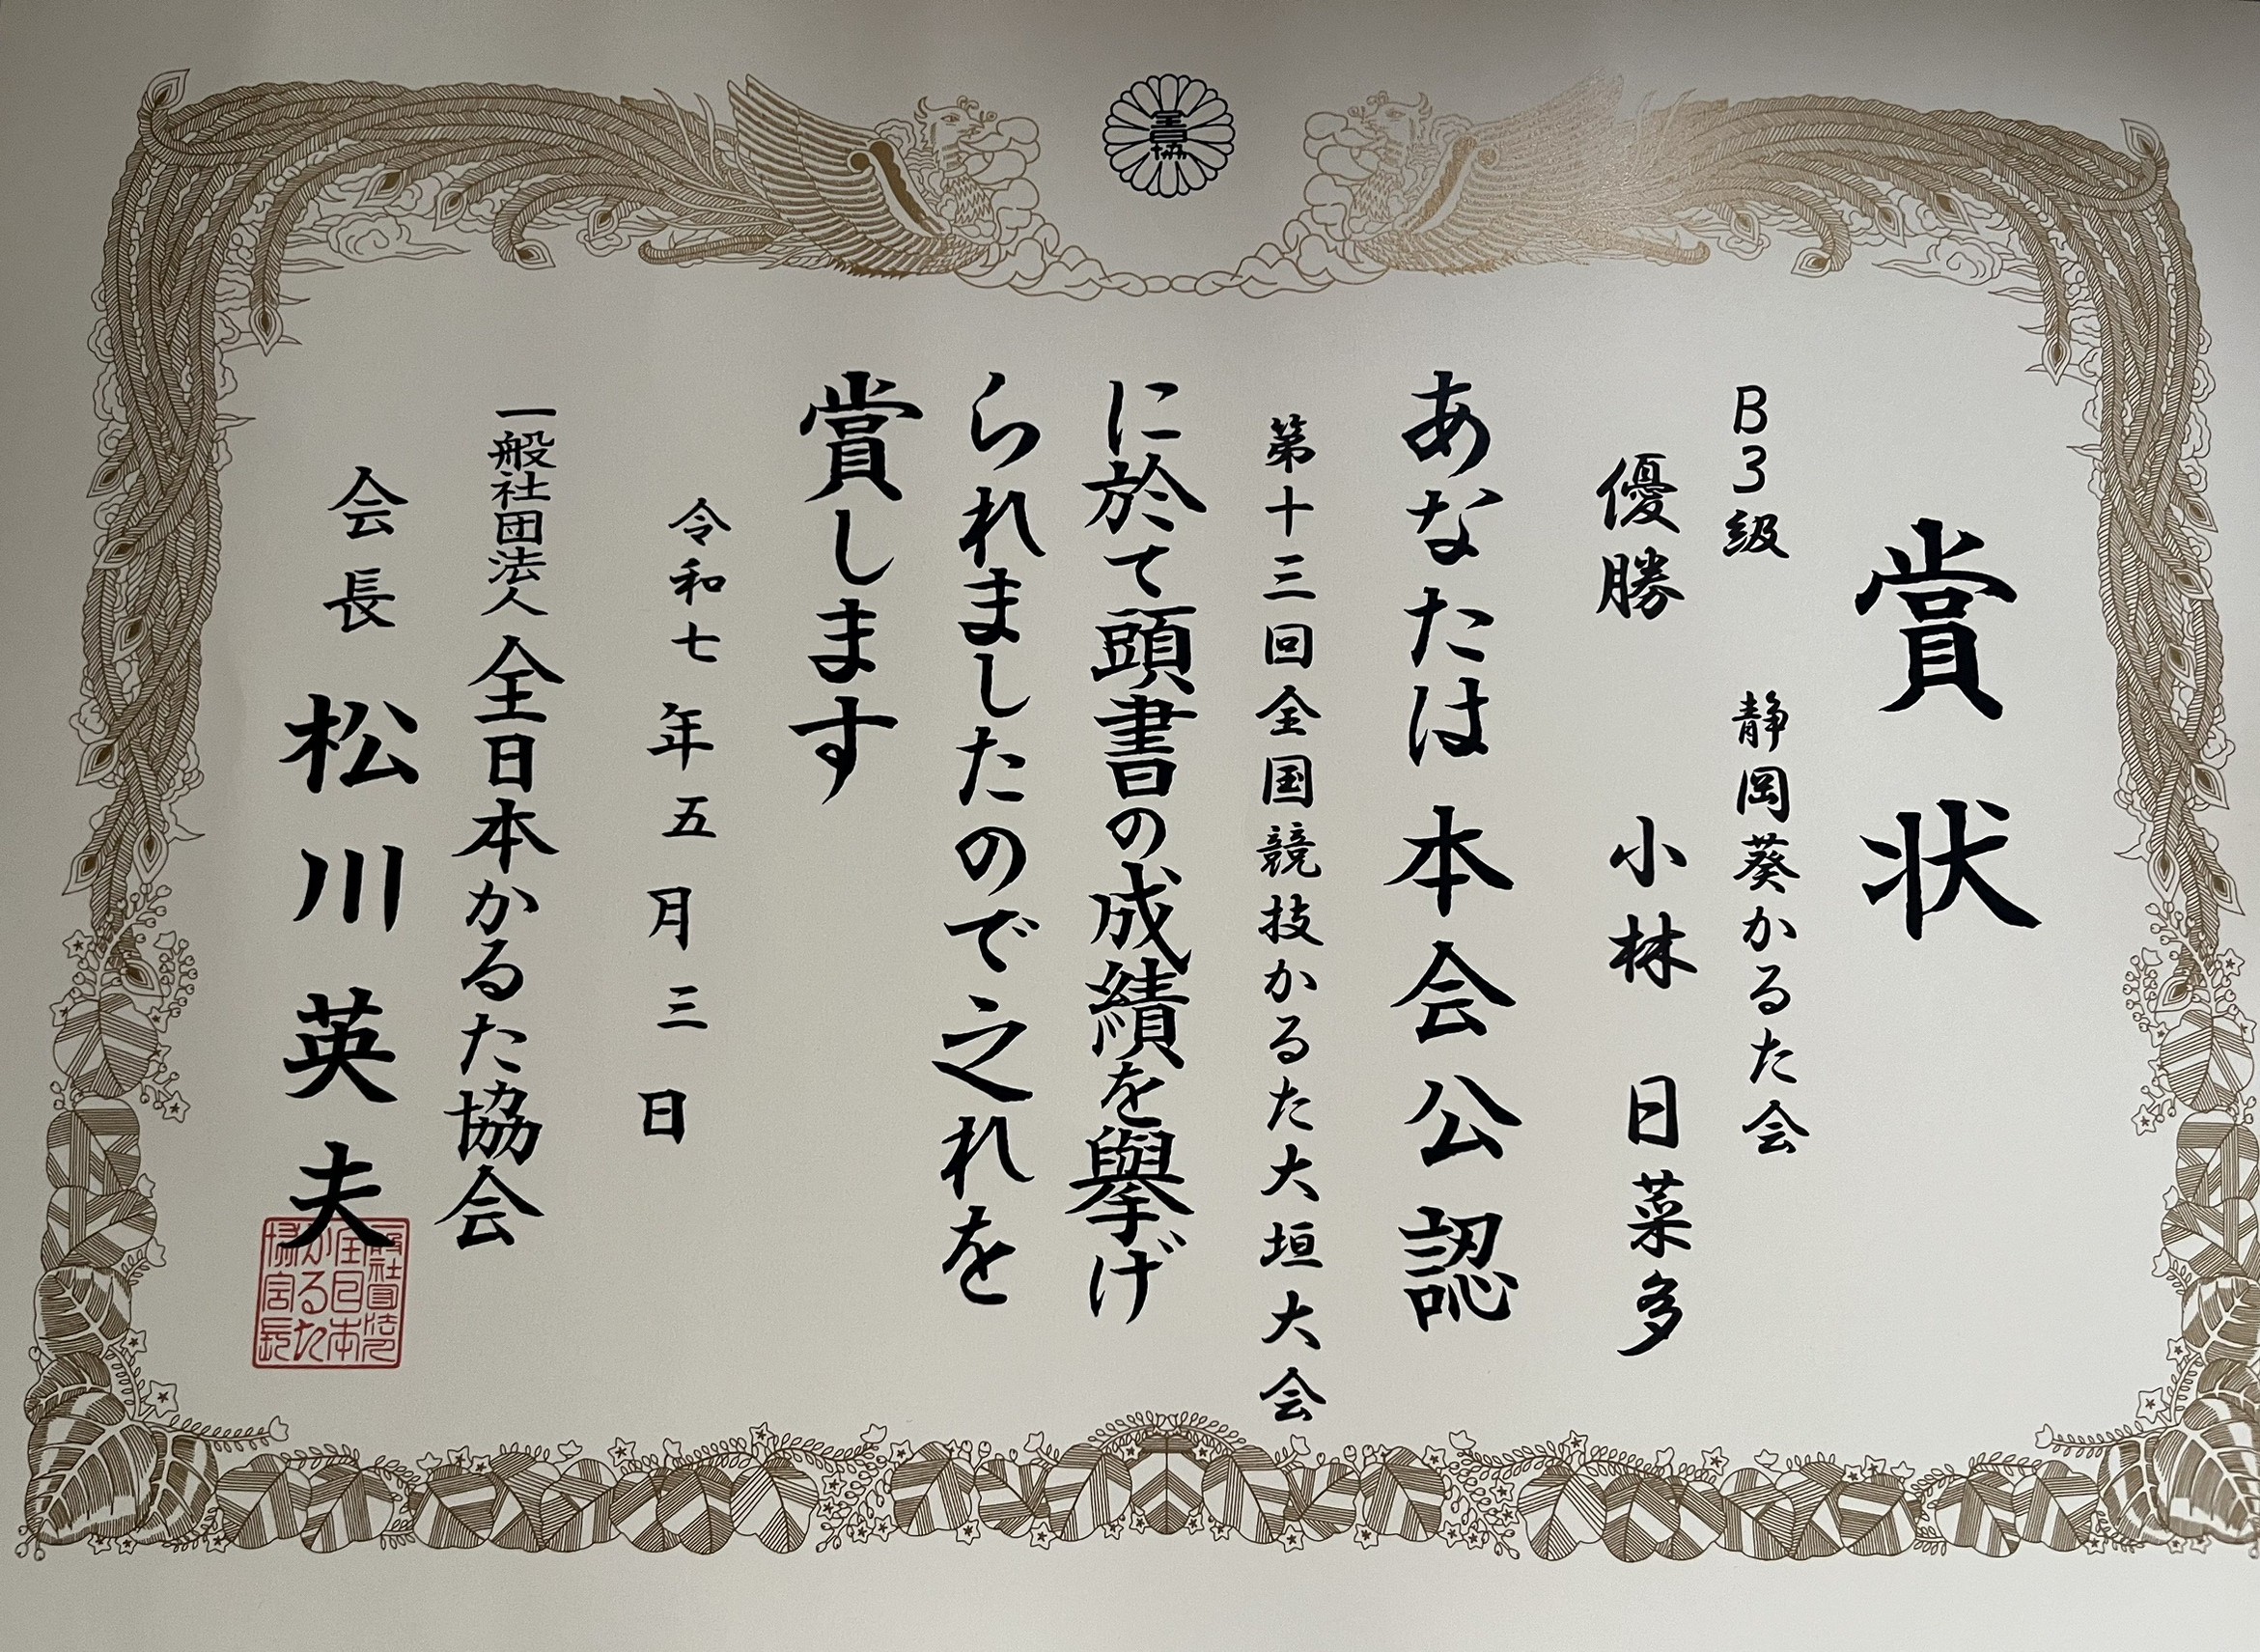 賞状
B3級 静岡葵かるた会
優勝 小林 日菜多
あなたは本会公認
第十三回全国競技かるた大垣大会
に於て頭書の成績を擧げ
られましたので之れを
賞します
令和七年五月三日
一般社団法人 全日本かるた協会
会長 松川英夫